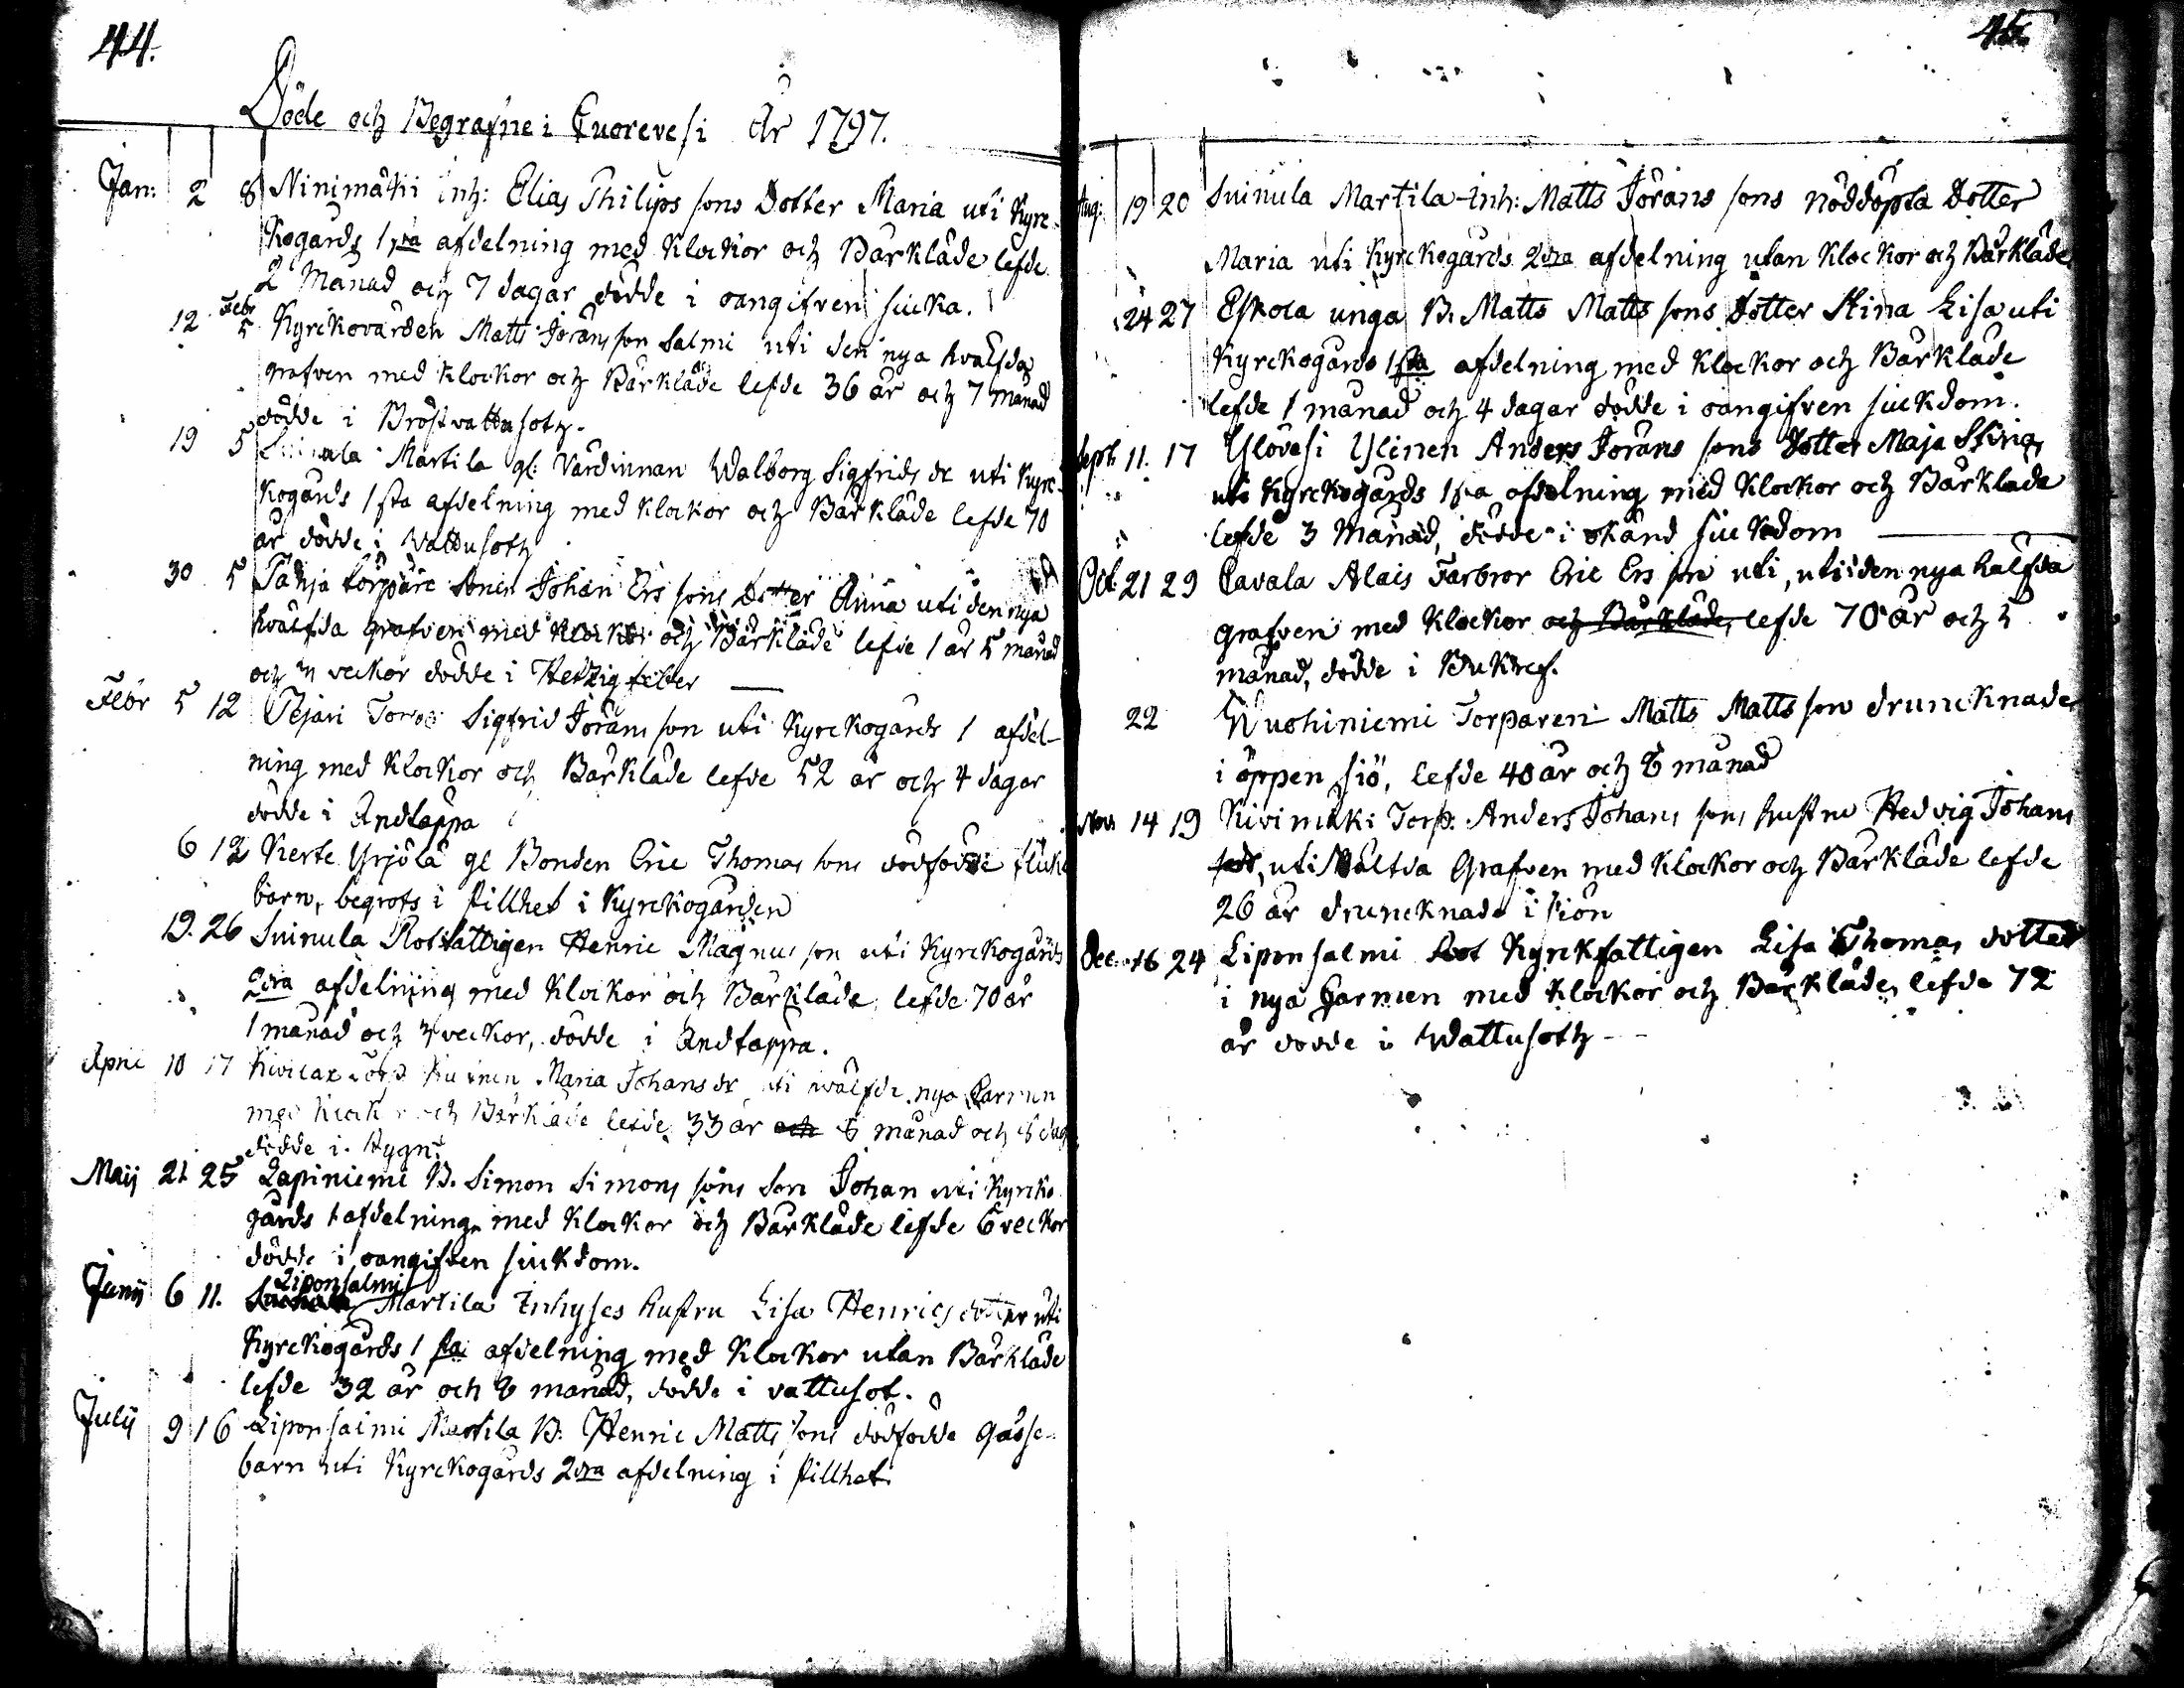 44.
Döde och Begrafne i Cuorevesi År 1797.
Jan: 2 8 Ninimäki Inh: Elias Philips sons Dotter Maria uti Kyrc-
kogårds 1sta afdelning med Klockor och Bårkläde lefde
2 Månad och 7 dagar dödde i oangifven siucka.
12 Febr 5 Kyrckovärden Matts Jöransson Salmi uti den nya hvälfda
grafven med Klockor och Bårkläde lefde 36 år och 7 månad
dödde i Bröstvattusoth.
19 5 Martila gl: Värdinnan Walborg Sigfrids dr uti Kyrc-
kogårds 1sta afdelning med Klockor och Bårkläde lefde 70
år dödde i Wattusoth
30 5 torpare Johan Ers sons Dotter Anna uti den nya
hvälfda grafven med Klockor och Bårkläde lefde 1 år 5 månad
och veckor dödde i Hetzig feber
Febr 5 12 Pejari Torp: Sigfrid Jörans son uti Kyrckogårds 1 afdel-
ning med Klockor och Bårkläde lefde 52 år och 4 dagar
dödde i Andtäppa
6 12 Kerte Yrjölä gl Bonden Eric Thomas sons dödfödde flicke
barn, begrofs i stillhet i Kyrckogården
19. 26 Suinula Rotfattigen Henric Magnus son uti Kyrckogårds
2dra afdelning med Klockor och Bårkläde lefde 70 år
1 månad och 3 veckor, dödde i Andtäppa.
April 10 17 Maria Johans dr uti nya
med Klockor och Bårkläde lefde 33 år och 5 månad och
dödde i
Maij 21 25 Lapiniemi B. Simon Simons sons Son Johan uti Kyrcko
gårds 1 afdelning med Klockor och Bårkläde lefde 6 veckor
dödde i oangifven siuckdom.
Liponsalmi
Junij 6 11. Martila Inhyses hustru Lisa Henrics dotter uti
Kyrckogårds 1 sta afdelning med Klockor utan Bårkläde
lefde 32 år och 8 månad, dödde i vattusot.
Julij 9 16 Liponsalmi Martila B: Henric Matts sons dödfödde gåsse-
barn uti Kyrckogårds 2dra afdelning i stillhet.
45.
Aug: 19 20 Suinula Martila Inh: Matts Jörans sons nöddöpta Dotter
Maria uti Kyrckogårds 2dra afdelning utan Klockor och Bårkläde
24 27 Eskola unga B. Matts Matts sons Dotter Stina Lisa uti
Kyrckogårds 1sta afdelning med Klockor och Bårkläde
lefde 1 månad och 4 dagar dödde i oangifven siuckdom.
Sept: 11. 17 Ylövesi Ylinen Anders Jörans sons Dotter Maja Stina,
uti Kyrckogårds 1sta afdelning med Klockor och Bårkläde
lefde 3 Månad, dödde i okänd siuckdom
Oct 21 29 Lavala Alais Farbror Eric Ers son uti, uti den nya hälfda
grafven med Klockor och Bårkläde, lefde 70 år och 5
månad, dödde i Bukref.
22 Wuohiniemi Torparen Matts Matts son druncknade
i öppen siö, lefde 40 år och 8 månad
Nov: 14 19 Kivimäki Torp: Anders Johans sons hustru Hedvig Johans
uti Grafven med Klockor och Bårkläde lefde
26 år druncknade i siön
Dec: 16 24 Liponsalmi Rot Kyrckfattigen Lisa Thomas dotter
i nya med Klockor och Bårkläde, lefde 72
år dödde i Wattusoth